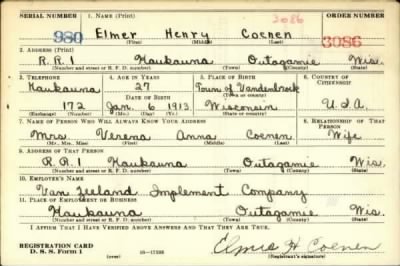 SERIAL NUMBER 1. NAME (Print) ORDER NUMBER
2086
980 Elmer Henry Coenen 3086
(First) (Middle) (Last)
2. ADDRESS (Print)
R.R. 1 Kaukauna Outagamie Wis.
(Number and street or R. F. D. number) (Town) (County) (State)
3. TELEPHONE 4. AGE IN YEARS 5. PLACE OF BIRTH 6. COUNTRY OF CITIZENSHIP
Kaukauna 27 Town of Vandenbroek
DATE OF BIRTH (Town or county)
172 Jan. 6 1913 Wisconsin U.S.A.
(Exchange) (Number) (Mo.) (Day) (Yr.) (State or country)
7. NAME OF PERSON WHO WILL ALWAYS KNOW YOUR ADDRESS 8. RELATIONSHIP OF THAT PERSON
Mrs. Verena Anna Coenen Wife
(Mr., Mrs., Miss) (First) (Middle) (Last)
9. ADDRESS OF THAT PERSON
R.R. 1 Kaukauna Outagamie Wis.
(Number and street or R. F. D. number) (Town) (County) (State)
10. EMPLOYER'S NAME
Van Zeeland Implement Company
11. PLACE OF EMPLOYMENT OR BUSINESS
Kaukauna Outagamie Wis.
(Number and street or R. F. D. number) (Town) (County) (State)
I AFFIRM THAT I HAVE VERIFIED ABOVE ANSWERS AND THAT THEY ARE TRUE.
REGISTRATION CARD
D. S. S. FORM 1 (over) Elmer H Coenen
(Registrant's signature)